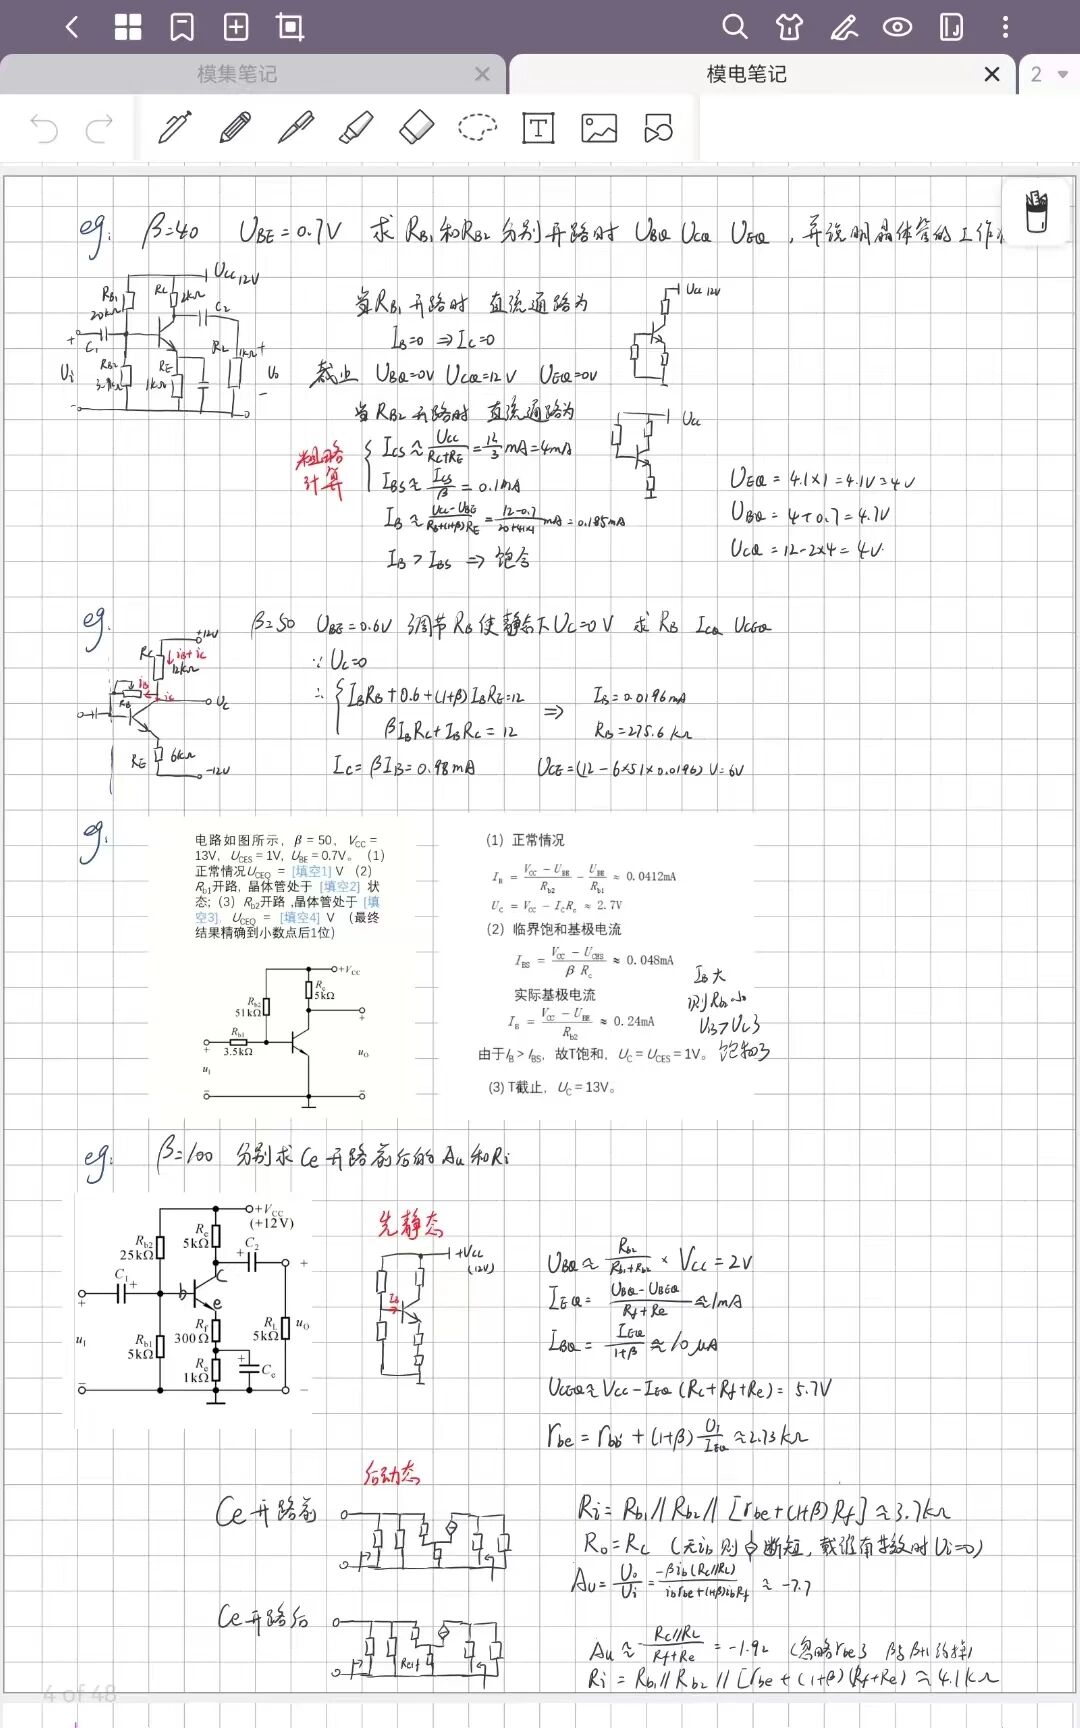 模集笔记
模电笔记
2
eg: β=40 U_BE=0.7V 求 R_B1 和 R_B2 分别开路时 U_BQ U_CQ U_EQ , 并说明晶体管的工作
U_CC 12V
R_B1 20kΩ
R_C 2kΩ
C2
C1
R_B2
R_E 1kΩ
R_L 1kΩ
U_i
U_o
当R_B1开路时 直流通路为
I_B=0 ⇒ I_C=0
截止 U_BQ=0V U_CQ=12V U_EQ=0V
U_CC 12V
当R_B2开路时 直流通路为
U_CC
粗略计算
I_CS ≈ U_CC/(R_C+R_E) = 12/3 mA = 4mA
I_BS ≈ I_CS/β = 0.1mA
I_B ≈ (U_CC-U_BE)/(R_B+(1+β)R_E) = (12-0.7)/(20+41×1) mA = 0.185mA
I_B > I_BS ⇒ 饱合
U_EQ = 4.1×1 = 4.1V ≈ 4V
U_BQ = 4+0.7 = 4.7V
U_CQ = 12-2×4 = 4V.
eg: β=50 U_BE=0.6V 调节R_B使静态下U_C=0V 求 R_B I_CQ U_CEQ
+12V
R_C 12kΩ
i_B+i_C
i_B
i_C
R_B
U_C
R_E 6kΩ
-12V
∵ U_C=0
∴ { I_B R_B+0.6+(1+β)I_B R_E=12
βI_B R_C+I_B R_C = 12
⇒ I_B=0.0196mA
R_B=275.6kΩ
I_C = βI_B = 0.98mA U_CE=(12-6×51×0.0196)V=6V
eg:
电路如图所示，β = 50，V_CC =
13V，U_CES = 1V，U_BE = 0.7V。（1）
正常情况U_CEQ = [填空1] V（2）
R_b1开路，晶体管处于 [填空2] 状
态；（3）R_b2开路 ,晶体管处于 [填
空3]，U_CEQ = [填空4] V （最终
结果精确到小数点后1位）
+V_CC
R_c 5kΩ
R_b2 51kΩ
R_b1 3.5kΩ
u_I
u_O
(1) 正常情况
I_B = (V_CC − U_BE)/R_b2 − U_BE/R_b1 ≈ 0.0412mA
U_C = V_CC − I_C R_c ≈ 2.7V
(2) 临界饱和基极电流
I_BS = (V_CC − U_CES)/(β R_c) ≈ 0.048mA
实际基极电流
I_B = (V_CC − U_BE)/R_b2 ≈ 0.24mA
由于I_B > I_BS，故T饱和，U_C = U_CES = 1V。
(3) T截止，U_C = 13V。
I_B大
则R_b2小
U_B>U_C了
饱和了
eg: β=100 分别求Ce开路前后的Au和Ri
+V_CC (+12V)
R_c 5kΩ
C2
R_b2 25kΩ
C1
b
c
e
R_f 300Ω
R_L 5kΩ
R_b1 5kΩ
R_e 1kΩ
C_e
u_I
u_O
先静态
+V_CC (12V)
I_B
U_BQ ≈ R_b2/(R_b1+R_b2) × V_CC = 2V
I_EQ = (U_BQ-U_BEQ)/(R_f+R_e) ≈ 1mA
I_BQ = I_EQ/(1+β) ≈ 10μA
U_CEQ ≈ V_CC-I_EQ(R_c+R_f+R_e) = 5.7V
r_be = r_bb' + (1+β) U_T/I_EQ ≈ 2.73kΩ
后动态
Ce开路前
Ri = R_b1 // R_b2 // [r_be+(1+β)R_f] ≈ 3.7kΩ
Ro = R_C
Au = Uo/Ui = -βi_b(R_C//R_L)/(i_b r_be+(1+β)i_b R_f) ≈ -7.7
Ce开路后
R_e+f
Au ≈ - R_C//R_L/(R_f+R_e) = -1.92
Ri = R_b1 // R_b2 // [r_be+(1+β)(R_f+R_e)] ≈ 4.1kΩ
4 of 48